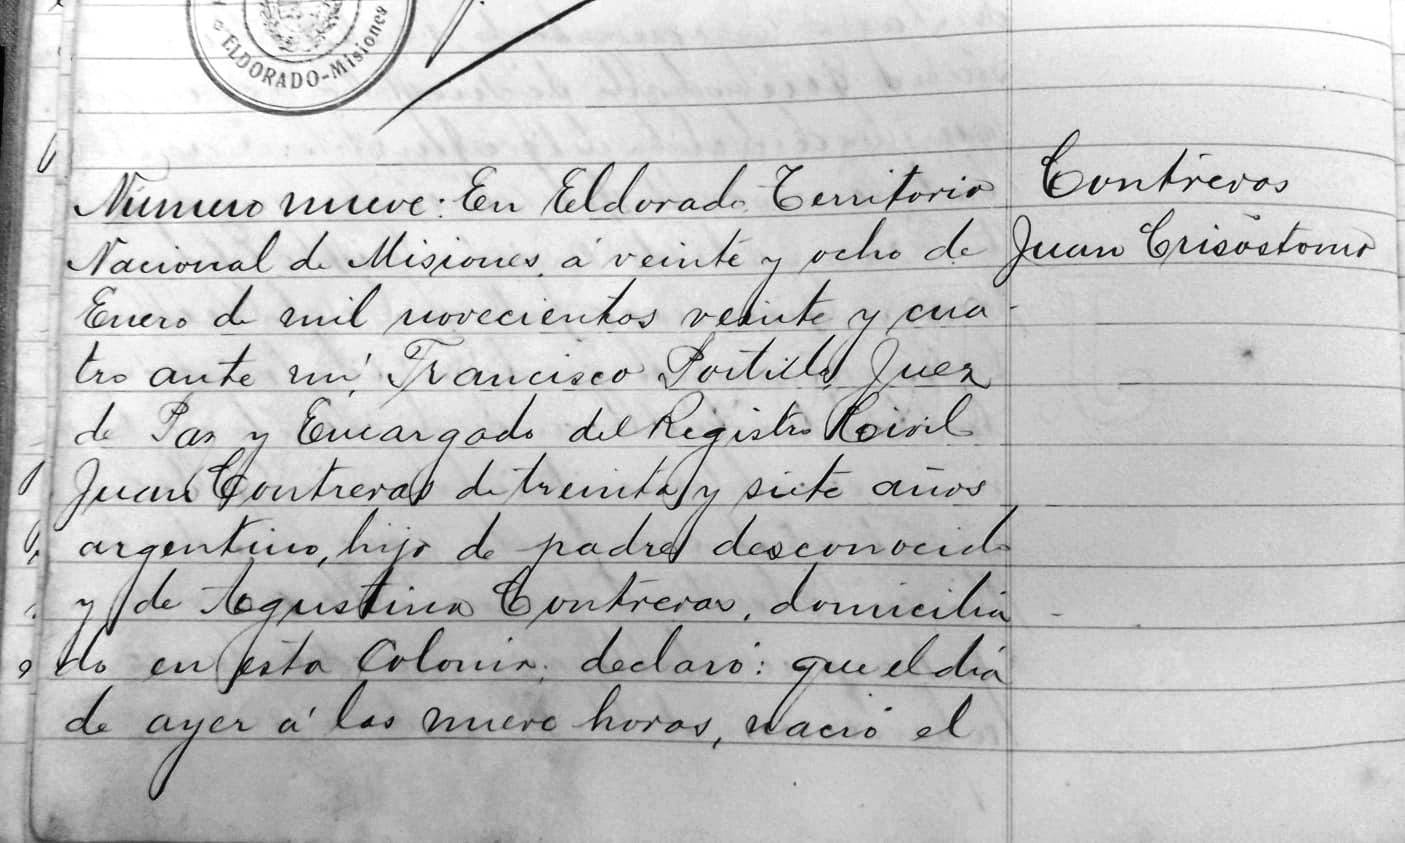 ELDORADO-Misiones
Número nueve: En Eldorado Territorio
Nacional de Misiones, á veinte y ocho de
Enero de mil novecientos veinte y cua-
tro ante mí, Francisco Portillo, Juez
de Paz y Encargado del Registro Civil
Juan Contreras de treinta y siete años
argentino, hijo de padre desconocido
y de Agustina Contreras, domicilia-
do en esta Colonia, declaró: que el día
de ayer á las nueve horas, nació el
Contreras
Juan Crisóstomo